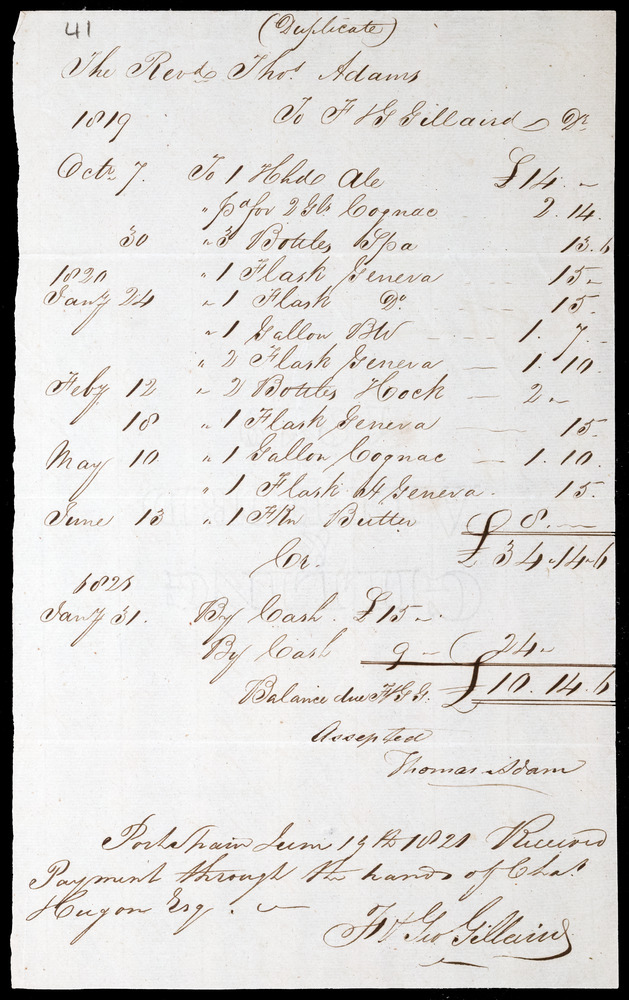 41
(Duplicate)
The Revd Thos Adams
1819 To F & G Gillaird Dr
Octr 7. To 1 Hhd Ale £14. -
" pd for 2 Gls Cognac 2. 14.
30 " 3 Bottles Spa 13. 6
1820 " 1 Flask Geneva 15 -
Jany 24 " 1 Flask Do. 15.
" 1 Gallon BW 1. 7 -
" 2 Flask Geneva 1. 10.
Feby 12 " 2 Bottles Hock 2 -
18 " 1 Flask Geneva 15 -
May 10 " 1 Gallon Cognac 1. 10.
" 1 Flask H Geneva. 15.
June 13 " 1 Fkn Butter £8. -
Cr. £34. 14. 6
1821
Jany 31. By Cash. £15 -
By Cash 9 - 24 -
Balance due F&GG. £10. 14. 6
Accepted
Thomas Adam
Port Spain June 19th 1821 Received
Payment through the hands of Chas
Hugon Esq. -
F & Geo Gillaird